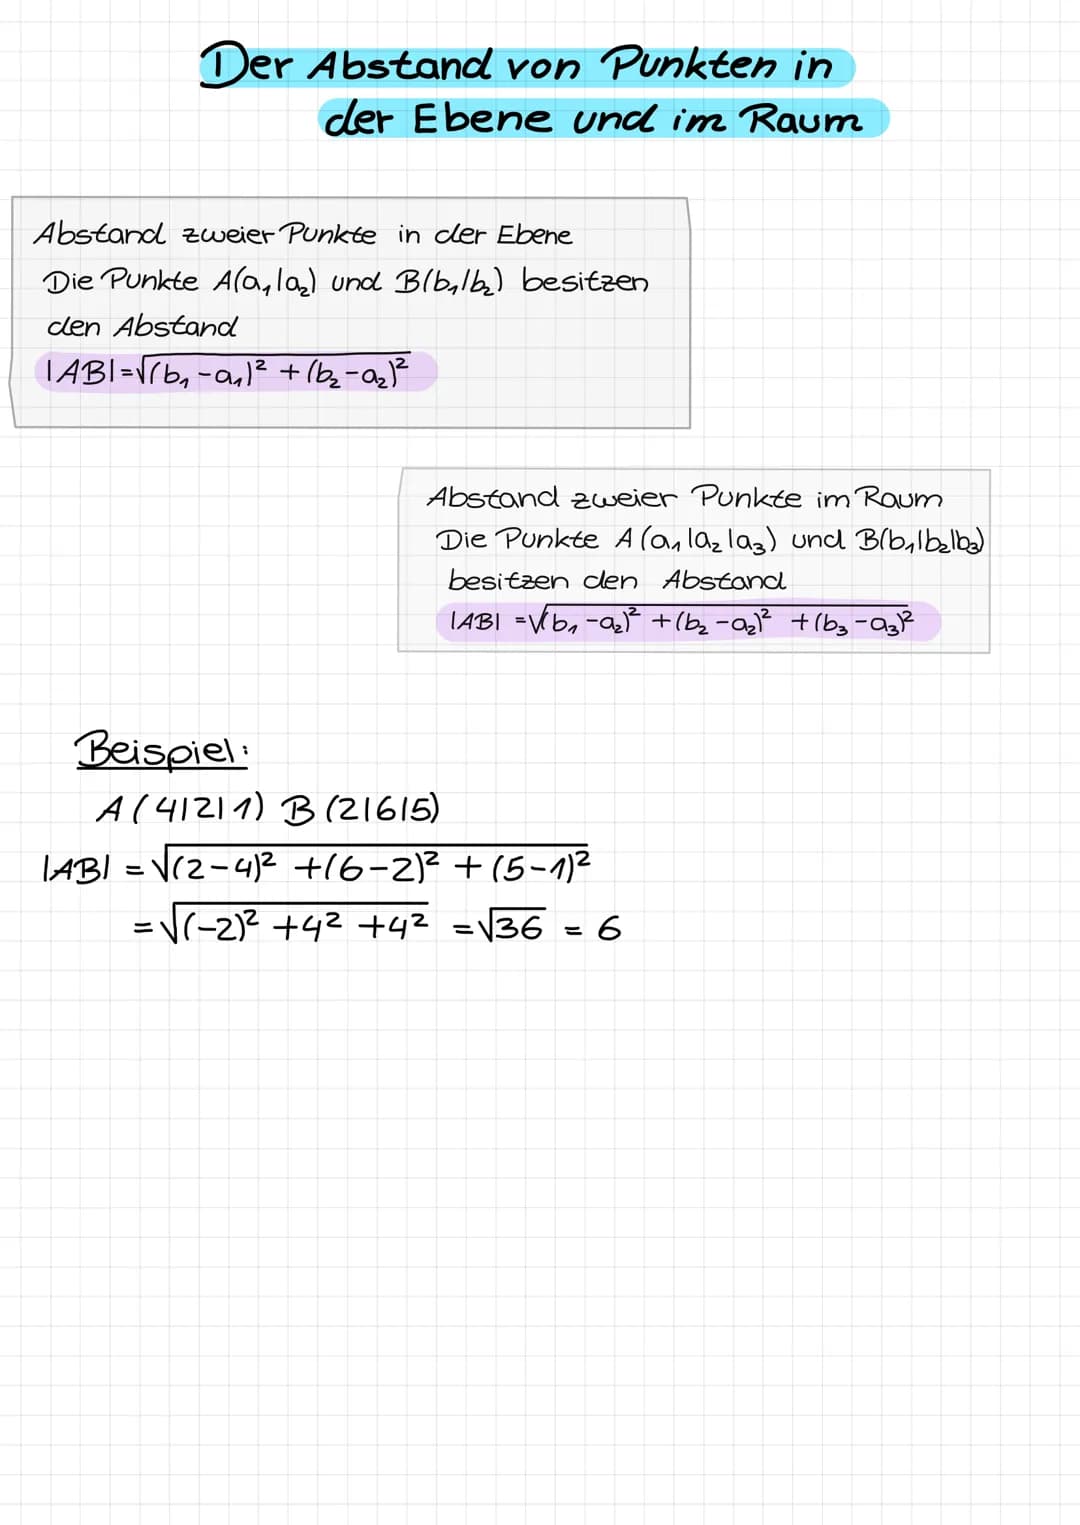 Der Abstand von Punkten in
der Ebene und im Raum
Abstand zweier Punkte in der Ebene
Die Punkte A(a₁|a₂) und B(b₁|b₂) besitzen
den Abstand
|AB|=√(b₁-a₁)² + (b₂-a₂)²
Abstand zweier Punkte im Raum
Die Punkte A(a₁|a₂|a₃) und B(b₁|b₂|b₃)
besitzen den Abstand
|AB| =√(b₁-a₂)² + (b₂-a₂)² + (b₃-a₃)²
Beispiel:
A(4|2|1) B(2|6|5)
|AB| = √(2-4)² + (6-2)² + (5-1)²
= √(-2)² + 4² + 4² = √36 = 6